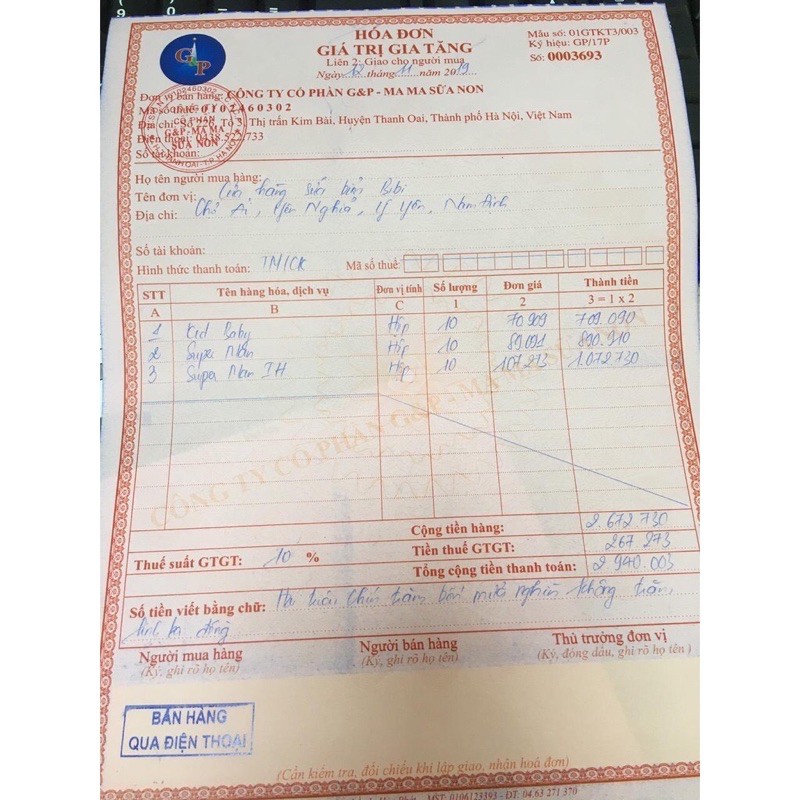 HÓA ĐƠN
GIÁ TRỊ GIA TĂNG
Liên 2: Giao cho người mua
Ngày 12 tháng 11 năm 2019
Mẫu số: 01GTKT3/003
Ký hiệu: GP/17P
Số: 0003693
G&P
Đơn vị bán hàng: CÔNG TY CỔ PHẦN G&P - MA MA SỮA NON
Mã số thuế: 0102460302
Địa chỉ: Số Tổ 3, Thị trấn Kim Bài, Huyện Thanh Oai, Thành phố Hà Nội, Việt Nam
Điện thoại: 733
Số tài khoản:
CỔ PHẦN
G&P - MA MA
SỮA NON
Họ tên người mua hàng:
Tên đơn vị: Cửa hàng Bibi
Địa chỉ: Yên Nghĩa, Ý Yên, Nam Định
Số tài khoản:
Hình thức thanh toán: TM/CK Mã số thuế:
STT Tên hàng hóa, dịch vụ Đơn vị tính Số lượng Đơn giá Thành tiền
A B C 1 2 3 = 1 x 2
1 Kid Baby Hộp 10 70909 709.090
2 Super Man Hộp 10 89091 890.910
3 Super Man IH Hộp 10 107273 1.072.730
CÔNG TY CỔ PHẦN G&P - MA MA SỮA NON
Cộng tiền hàng: 2.672.730
Thuế suất GTGT: 10 % Tiền thuế GTGT: 267.273
Tổng cộng tiền thanh toán: 2.940.003
Số tiền viết bằng chữ: Hai triệu chín trăm bốn mươi nghìn không trăm
linh ba đồng
Người mua hàng Người bán hàng Thủ trưởng đơn vị
(Ký, ghi rõ họ tên) (Ký, ghi rõ họ tên) (Ký, đóng dấu, ghi rõ họ tên)
BÁN HÀNG
QUA ĐIỆN THOẠI
(Cần kiểm tra, đối chiếu khi lập giao, nhận hoá đơn)
MST: 0106123393 - ĐT: 04.63 271 370